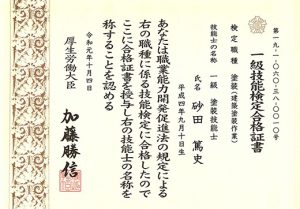 一級技能検定合格証書
第一九-一-〇六〇-三八-〇〇一〇号
検定職種 塗装(建築塗装作業)
技能士の名称 一級 塗装技能士
氏名 砂田 篤史
平成四年九月十日生
あなたは職業能力開発促進法の規定による
右の職種に係る技能検定に合格したので
ここに合格証書を授与し右の技能士の名称を
称することを認める
令和元年十月四日
厚生労働大臣 加藤勝信